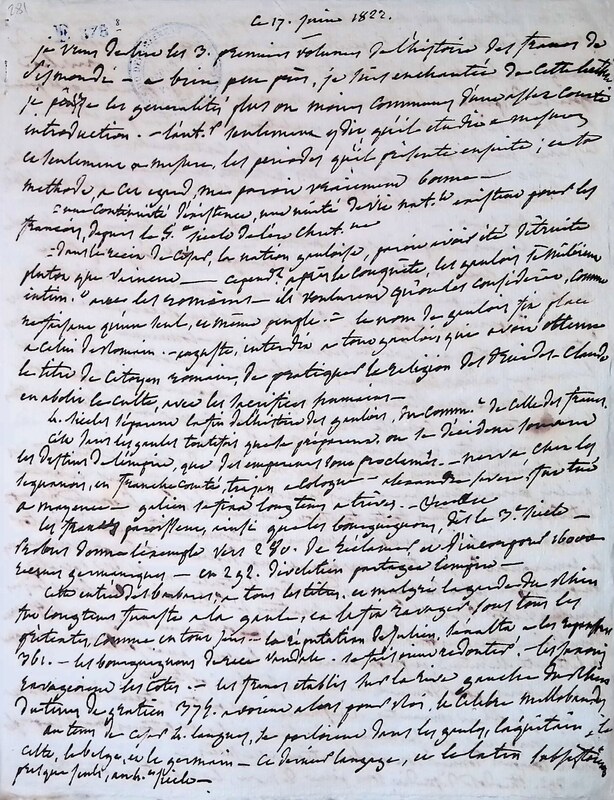 281
178 8
ce 17. juin 1822.
je viens de lire les 3. premiers volumes de l'histoire des francs de
Sismonde - a bien peu près, je suis enchantée de cette lecture
je les généralités plus ou moins communes d'une assez courte
introduction. - l'aut.r seulement y dit qu'il étudie a mesure,
et seulement a mesure, les périodes qu'il présente ensuite ; cette
méthode, a cet égard, me paroit vraiment bonne -
une continuité d'existence, une unité de vie nat.le existera pour les
francois, depuis le 5.e siècle de l'ère chret.ne
- dans le récit de César, la nation gauloise, paroit avoir été détruite
plutôt que vaincue - cepend.t après la conquête, les gaulois se mêlèrent
intim.t avec les romains - ils voulurent qu'on les considéra, comme
ne faisant qu'un seul, et même peuple. - le nom de gaulois fit place
a celui de Romain. - auguste, interdit a tous gaulois, qui avoit obtenu
le titre de citoyen romain, de pratiquer la religion des Druides. Claude
en abolit le culte, avec les sacrifices humains -
4. siècles séparent la fin de l'histoire des gaulois, du comm.t de celle des francs
c'est dans les gaules toutefois que se préparent, ou se décident souvent
les destins de l'empire, que des empereurs sont proclamés. - nerva, chez les
sequanois, en franche comté, trajan a cologne - alexandre sevère, fut tué
a mayence - galien se tint longtems a trèves. -
les francs paroissent, ainsi que les bourguignons, dès le 3.e siècle -
Probus donna l'exemple vers 280. de réclamer, et d'incorporer 16000
germaniques - en 292. dioclétien partagea l'empire -
cette entrée des barbares, a tous les titres, et malgré la garde du rhin
fut longtems funeste a la gaule, on la fit ravager sous tous les
prétextes, comme en tout païs - la réputation de julien, s'exalta a les repousser
361. - les bourguignons de race vandale. se faisoient redouter, - les saxons
ravageoient les côtes. - les francs établis sur la rive gauche du rhin
du tems de gratien 379. avoient alors pour roi, le célèbre mellobaudes
au tems de César 4. langues, se parloient dans les gaules, l'aquitain, le
celte, le belge, et le germain - ce dernier langage, et le latin subsistèrent
presque seuls, au 4.e siècle -